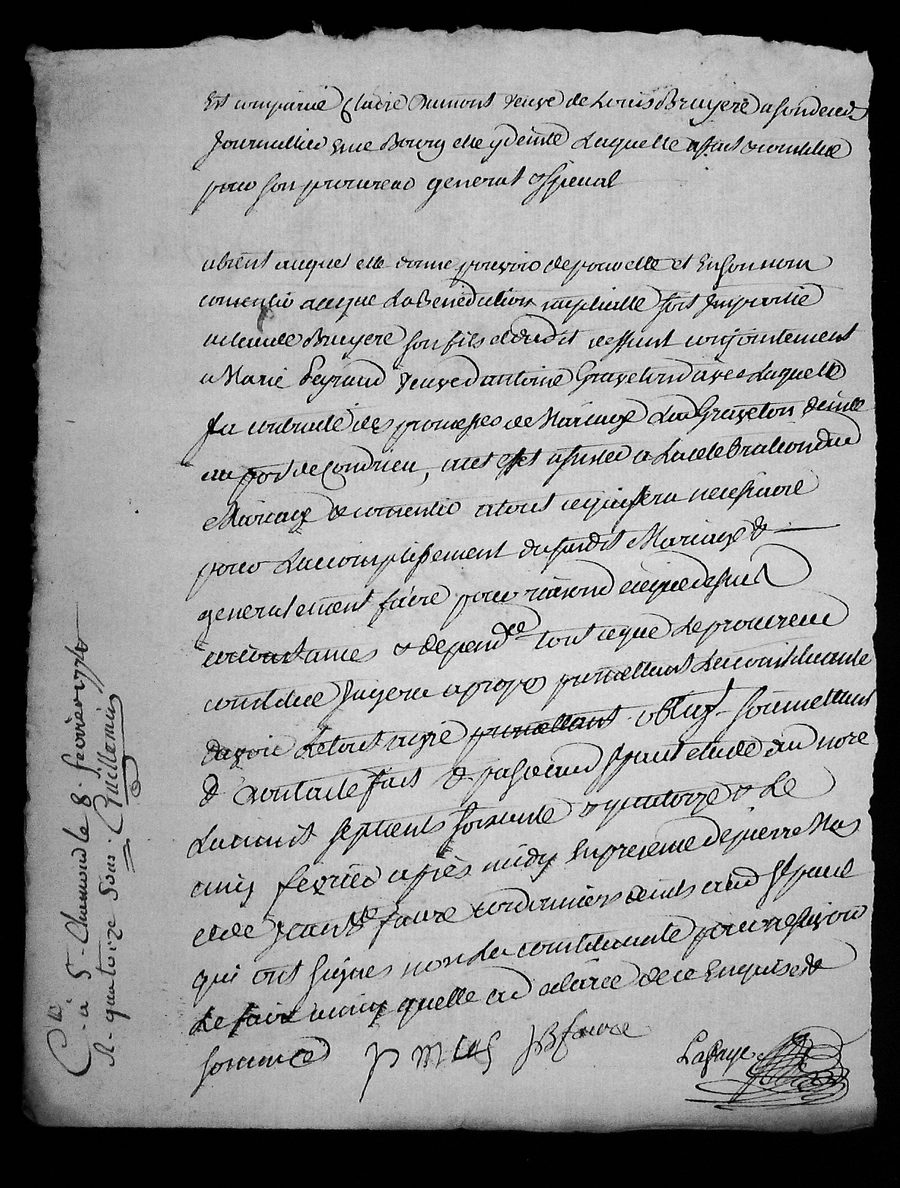 Est comparüe Claudie Dumont veuve de Louis Bruyere a son deceds
Journallier rue Bourg elle y dem.te Laquelle a fait & constitué
pour son procureur general & special
absent auquel elle donne pouvoir de pour elle et En son nom
consentir a ce que La Benediction nuptialle soit Impartie
a Bruyere son fils et dudit deffunt conjointement
a Marie Peyraud veuve d'antoine Graveton avec Laquelle
Il a contracté des promesses de Mariage Lad Graveton dem.te
au port de Condrieu, assister a La celebration dud
Mariage & consentir a tout ce qui sera necessaire
pour Laccomplissement du susdit Mariage &
generalement faire pour raison de ce que dessus
circonstances & depend.ce tout ce que Le procureur
constitué Jugera a propos promettant La constituante
davoir Le tout agrée promettant oblig.t soumettant
& dont acte fait & passé aud St paul etude du no.re
Lan mil sept cents soixante & quatorze & Le
cinq fevrier après midy En presence de pierre Mas
et de Jean B.te faure cordonniers dem.ts aud St paul
qui ont signés non La constituante pour ne sçavoir
Le faire ainsy quelle la declaré de ce Enquise &
sommée P mas JB faure Lafaye
C.lé a St Chamond le 8. fevrier 1774
R. quatorze sous. Guillemin